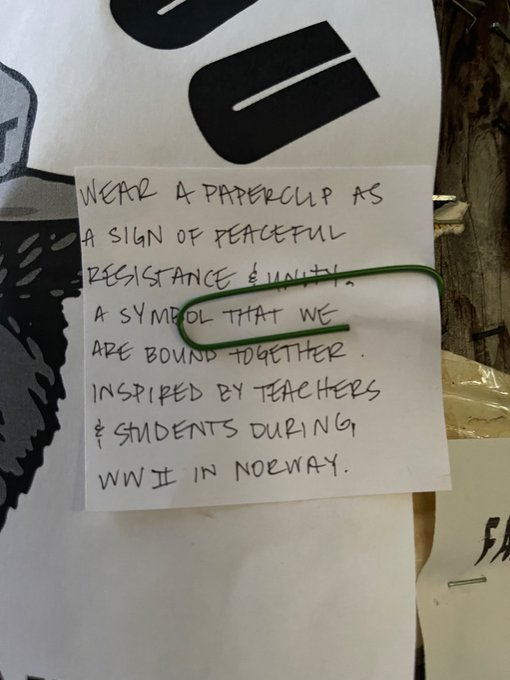 U
WEAR A PAPERCLIP AS
A SIGN OF PEACEFUL
RESISTANCE & UNITY.
A SYMBOL THAT WE
ARE BOUND TOGETHER.
INSPIRED BY TEACHERS
& STUDENTS DURING
WWII IN NORWAY.
FA